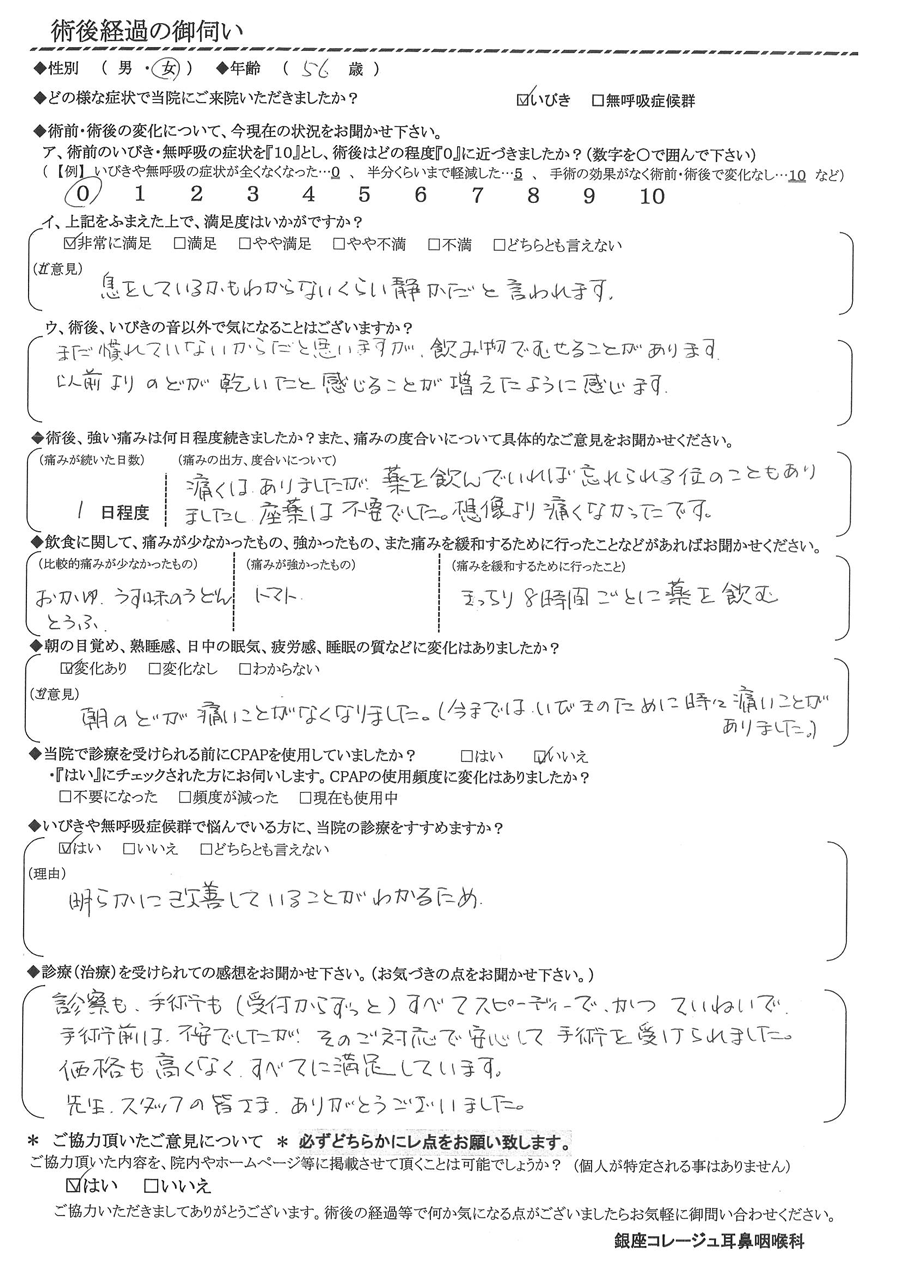 術後経過の御伺い
◆性別 （ 男 ・ 女 ） ◆年齢 （ 56 歳 ）
◆どの様な症状で当院にご来院いただきましたか？ ☑いびき □無呼吸症候群
◆術前・術後の変化について、今現在の状況をお聞かせ下さい。
ア、術前のいびき・無呼吸の症状を『10』とし、術後はどの程度『0』に近づきましたか？（数字を〇で囲んで下さい）
（【例】 いびきや無呼吸の症状が全くなくなった…0 、 半分くらいまで軽減した…5 、 手術の効果がなく術前・術後で変化なし…10 など）
0 1 2 3 4 5 6 7 8 9 10
イ、上記をふまえた上で、満足度はいかがですか？
☑非常に満足 □満足 □やや満足 □やや不満 □不満 □どちらとも言えない
（ご意見）
息をしているかもわからないくらい静かだと言われます。
ウ、術後、いびきの音以外で気になることはございますか？
まだ慣れていないからだと思いますが、飲み物でむせることがあります。
以前よりのどが乾いたと感じることが増えたように感じます。
◆術後、強い痛みは何日程度続きましたか？また、痛みの度合いについて具体的なご意見をお聞かせください。
（痛みが続いた日数） （痛みの出方、度合いについて）
痛くはありましたが、薬を飲んでいれば忘れられる位のこともあり
1 日程度 ましたし、座薬は不要でした。想像より痛くなかったです。
◆飲食に関して、痛みが少なかったもの、強かったもの、また痛みを緩和するために行ったことなどがあればお聞かせください。
（比較的痛みが少なかったもの） （痛みが強かったもの） （痛みを緩和するために行ったこと）
おかゆ、うす味のうどん トマト きっちり8時間ごとに薬を飲む
とうふ
◆朝の目覚め、熟睡感、日中の眠気、疲労感、睡眠の質などに変化はありましたか？
☑変化あり □変化なし □わからない
（ご意見）
朝のどが痛いことがなくなりました。（今まではいびきのために時々痛いことが
ありました。）
◆当院で診療を受けられる前にCPAPを使用していましたか？ □はい ☑いいえ
・『はい』にチェックされた方にお伺いします。CPAPの使用頻度に変化はありましたか？
□不要になった □頻度が減った □現在も使用中
◆いびきや無呼吸症候群で悩んでいる方に、当院の診療をすすめますか？
☑はい □いいえ □どちらとも言えない
（理由）
明らかに改善していることがわかるため。
◆診療（治療）を受けられての感想をお聞かせ下さい。（お気づきの点をお聞かせ下さい。）
診察も、手術も（受付からずっと）すべてスピーディーで、かつていねいで、
手術前は、不安でしたが、そのご対応で安心して手術を受けられました。
価格も高くなく、すべてに満足しています。
先生、スタッフの皆さま、ありがとうございました。
＊ ご協力頂いたご意見について ＊ 必ずどちらかにレ点をお願い致します。
ご協力頂いた内容を、院内やホームページ等に掲載させて頂くことは可能でしょうか？ （個人が特定される事はありません）
☑はい □いいえ
ご協力いただきましてありがとうございます。術後の経過等で何か気になる点がございましたらお気軽に御問い合わせください。
銀座コレージュ耳鼻咽喉科